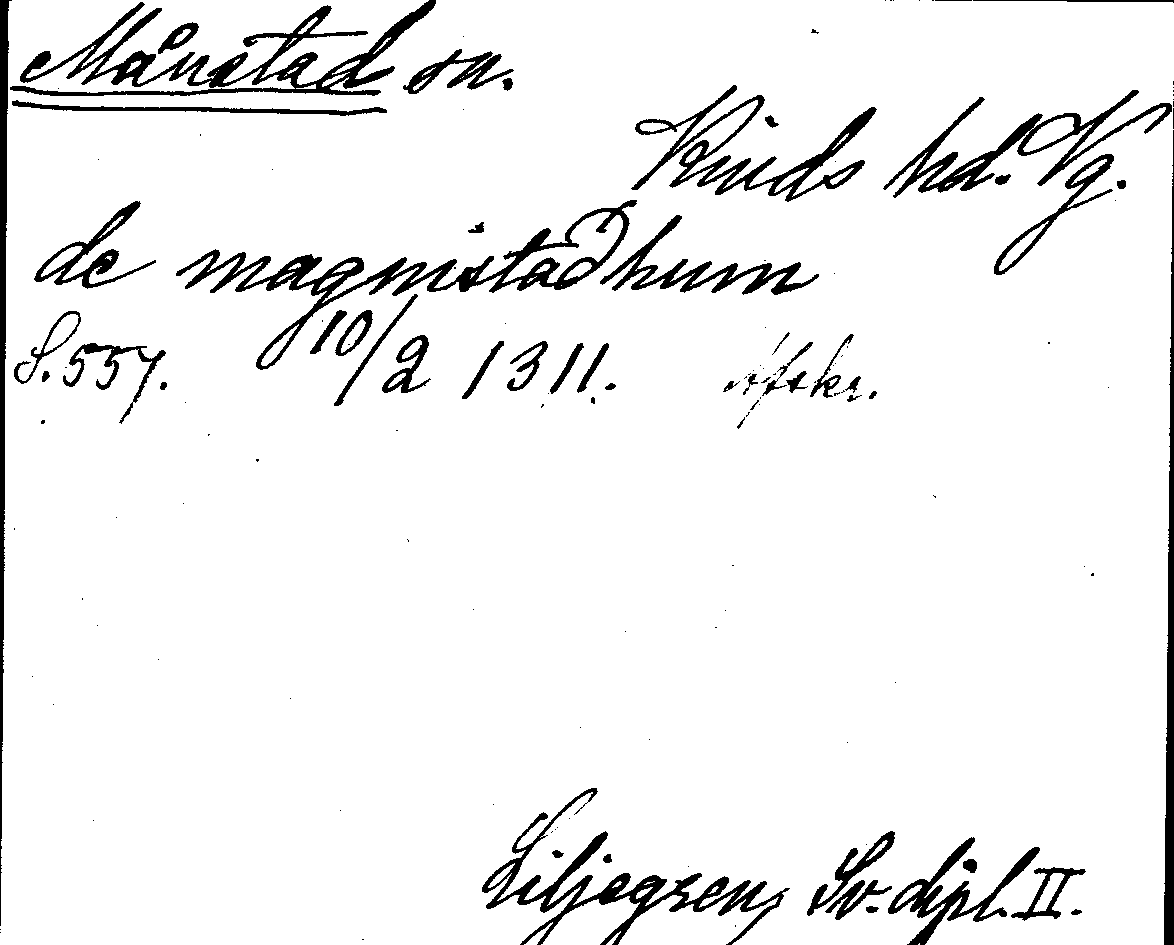 Månstad sn.
Kinds hd. Vg.
de magnistadhum
S. 557. 10/2 1311. Afskr.
Liljegren, Sv. dipl. II.